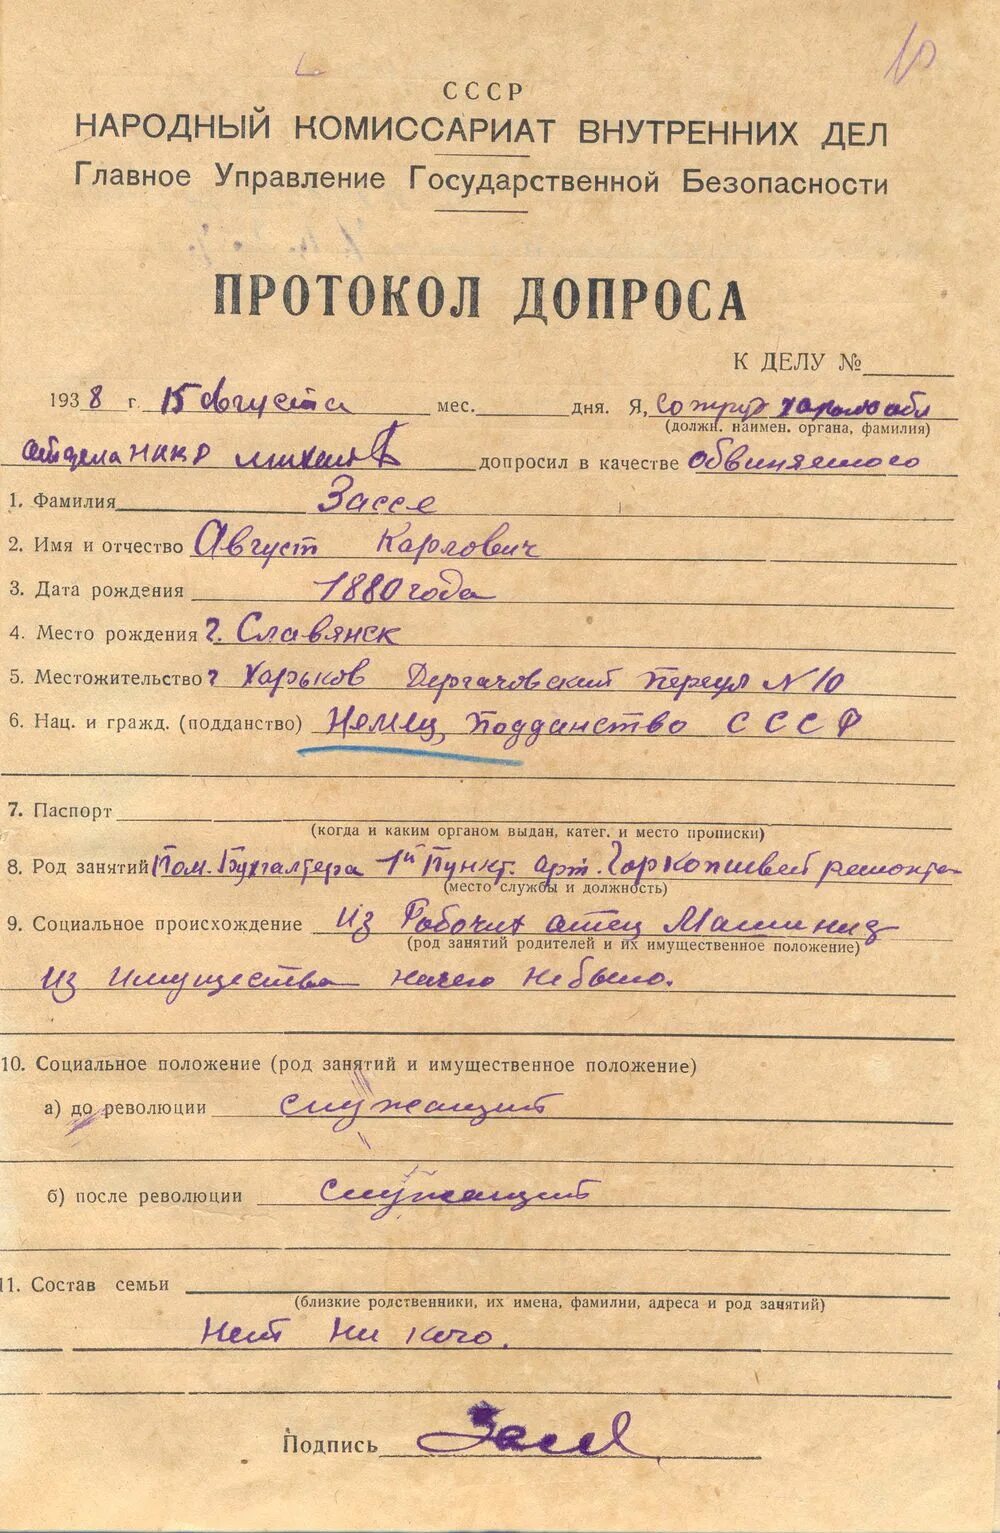 10
СССР
НАРОДНЫЙ КОМИССАРИАТ ВНУТРЕННИХ ДЕЛ
Главное Управление Государственной Безопасности
ПРОТОКОЛ ДОПРОСА
К ДЕЛУ №
1938 г. 15 августа мес. дня. Я,
(должн. наимен. органа, фамилия)
отдела НКВД допросил в качестве обвиняемого
1. Фамилия Зассе
2. Имя и отчество Август Карлович
3. Дата рождения 1880 года
4. Место рождения г. Славянск
5. Местожительство г Харьков Дергачовский переул N 10
6. Нац. и гражд. (подданство) Немец, подданство СССР
7. Паспорт
(когда и каким органом выдан, катег. и место прописки)
8. Род занятий Пом. Бухгалтера 1й Пункт. арт.
(место службы и должность)
9. Социальное происхождение Из Рабочих отец Машинист
(род занятий родителей и их имущественное положение)
Из имущества ничего не было.
10. Социальное положение (род занятий и имущественное положение)
а) до революции служащий
б) после революции служащий
11. Состав семьи
(близкие родственники, их имена, фамилии, адреса и род занятий)
Нет ни кого.
Подпись Зассе